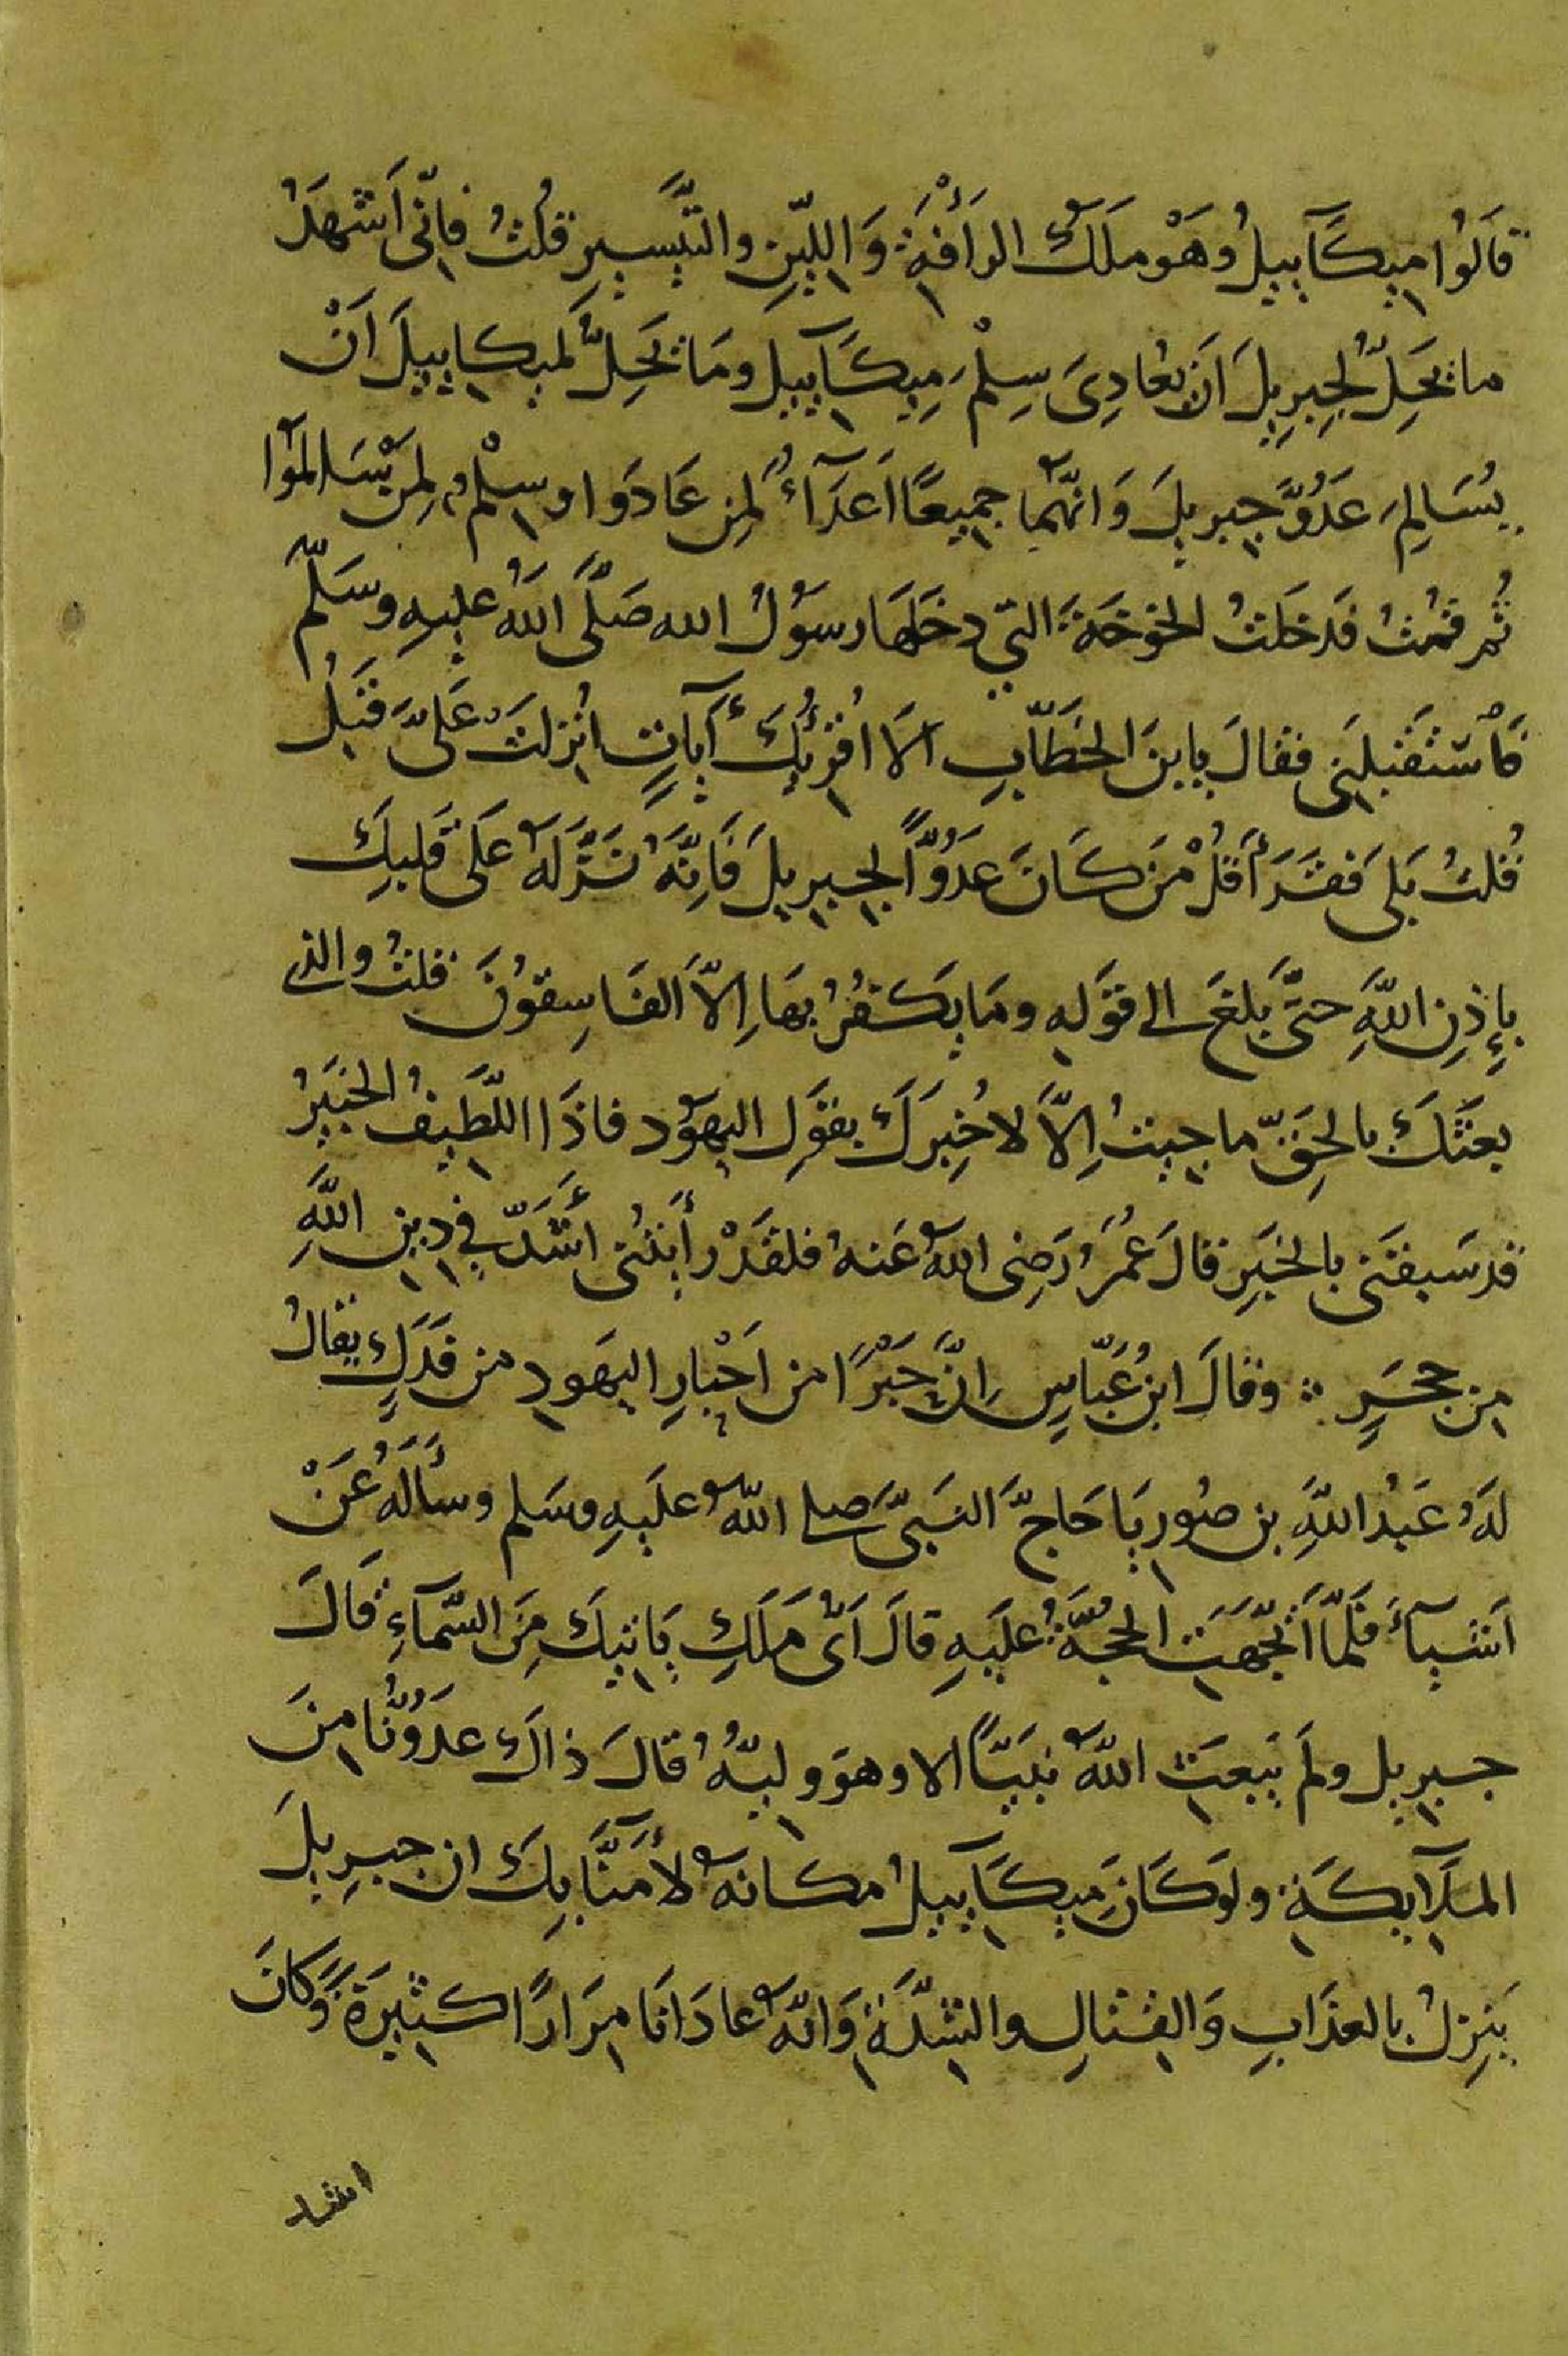 قَالُوا مِيكَآييلُ وَهَوْ مَلَكُ الرَأْفَةِ وَاللِّينِ والتَّيْسيرِ قلتُ فانّي أَشهَدُ
ما يَحِلُّ لِجبرِيلَ اَن يُعادِىَ سِلْمَ مِيكَآييل ومَا يَحِلُّ لميكاييلَ اَنْ
يُسَالِمَ عَدُوَّ جبريلَ وَانّهُما جميعًا اَعدَآءُ لمِن عَادَوا وسِلْمٌ لِمَنْ سَالمَوْا
ثُم قمْتُ فَدخَلتُ الخَوْخَةَ التي دخَلهَا رسَوُلُ الله صَلَّى اللهُ عليهِ وسَلَّم
فَاْستَقبلَني فقالَ يابنَ الخَطّابِ اَلَا اُقْرِئُكَ آياتٍ انُزلَتْ عَليَّ قَبْلُ
قُلتُ بَلَى فَقَرَأ قُلْ مَن كَانَ عدَوُّاً لجبريلَ فَاِنَّهُ نَزَّلهُ عَلَى قلبِكَ
بِإِذنِ اللَّهِ حتَّى بَلغَ الى قوَلهِ ومَا يَكفُرُ بهَا اِلاَّ الفَاسِقوُنَ قلتُ والذي
بعَثَكَ بالحَقِّ ما جيتُ اِلاَّ لاخُبِرَكَ بقوَلِ اليهوُد فاذَا اللَّطِيفُ الخبَيرُ
قد سَبقَنى بالخبَرِ قالَ عُمرُ رَضِى اللهُ عَنهُ فلقَدْ رأيتُنى أشَدّ في دين اللَّهِ
من حجَرٍ ∴ وقالَ ابنُ عَبّاسٍ اِنَّ حَبْرًا من اَحْبارِ اليهَودِ من فَدَكٍ يقالُ
لهَ عَبدُ اللَّهِ بن صُوريَا حَاجَّ النَبيَّ صلى اللهُ عليَهِ وسَلم وسأَلَهُ عَنْ
اَشيآءَ فلَمّا اَتجّهَتِ الحجّةُ عليَهِ قالَ اَىُّ مَلَكٍ يَاتيكَ مِنَ السَّمآءِ قَالَ
جبريل ولمَ يَبعَثِ اللهُ نبَيّاً الا وهوَ وليّهُ قالَ ذاكَ عدَوُّنا منَ
الملآيكَةِ ولوَ كَانَ مِيكَآييلُ مكانهُ لأَمَنَّا بِكَ ان جبرِيلَ
يَنزِلُ بالعذَابِ وَالقتالِ والشدّةِ وَانّهُ عادَانَا مرَارًا كثيرَةً وَكانَ
اشد